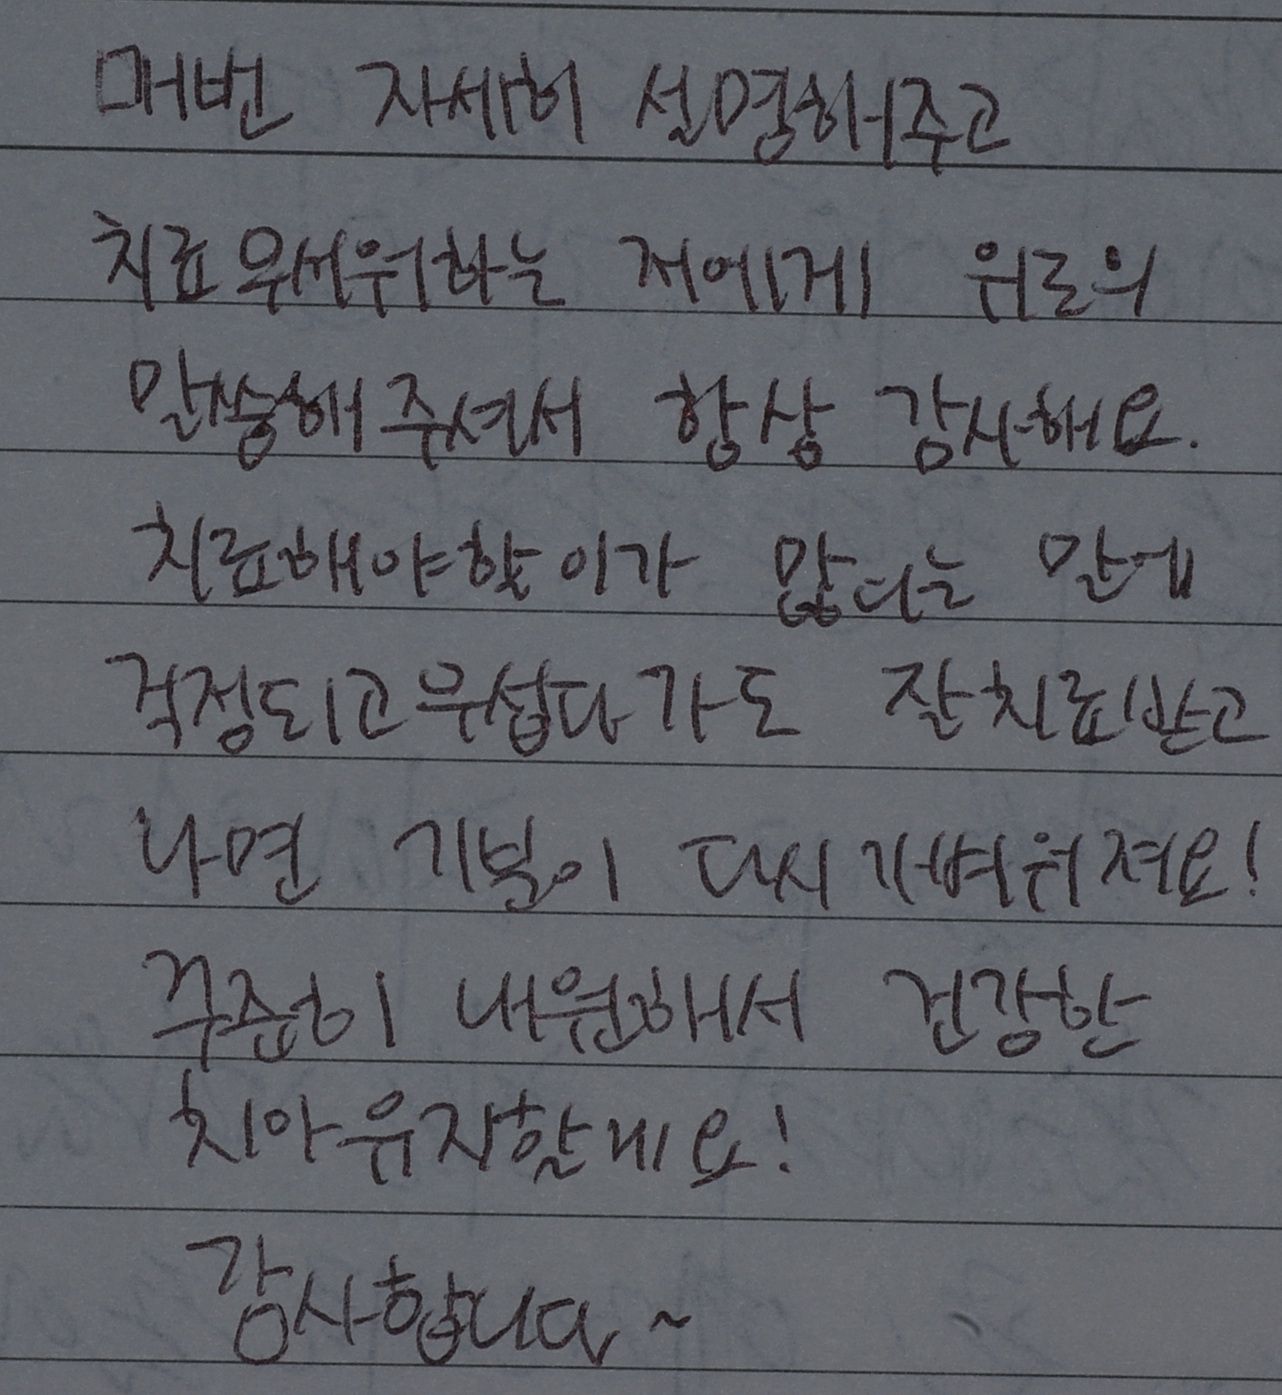 매번 자세히 설명해주고
치료무서워하는 저에게 위로의
말씀해주셔서 항상 감사해요.
치료해야할이가 많다는 말에
걱정되고무섭다가도 잘치료받고
나면 기분이 다시가벼워져요!
꾸준히 내원해서 건강한
치아유지할게요!
감사합니다~